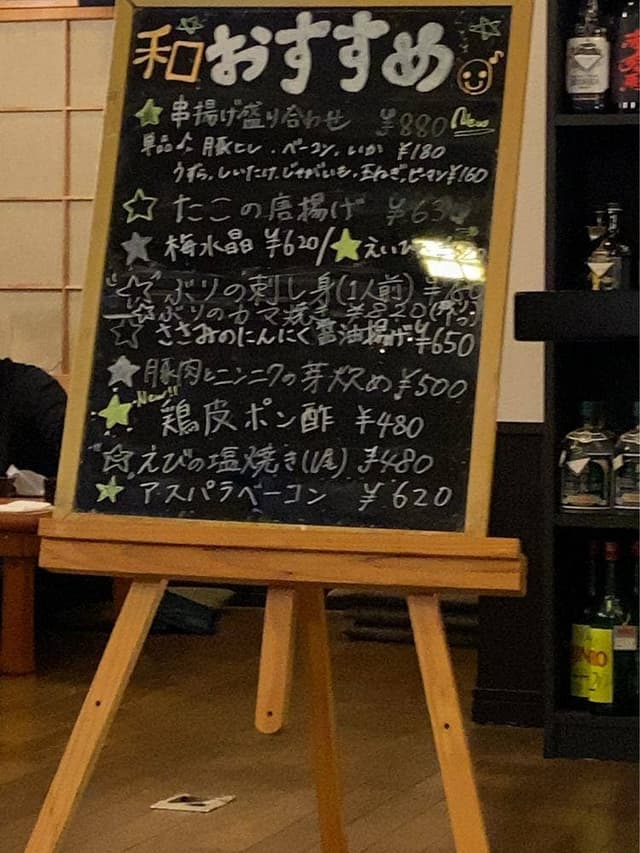 和おすすめ
串揚げ盛り合わせ ¥880 New
単品♪ 豚ヒレ、ベーコン、いか ¥180
うずら、しいたけ、じゃがいも、玉ねぎ、ピーマン ¥160
たこの唐揚げ ¥63
梅水晶 ¥620/★えい
ぶりの刺し身(1人前) ¥
ぶりのカマ焼き ¥820
ささみのにんにく醤油揚げ ¥650
豚肉とニンニクの芽炒め ¥500
New!!
鶏皮ポン酢 ¥480
えびの塩焼き ¥480
アスパラベーコン ¥620